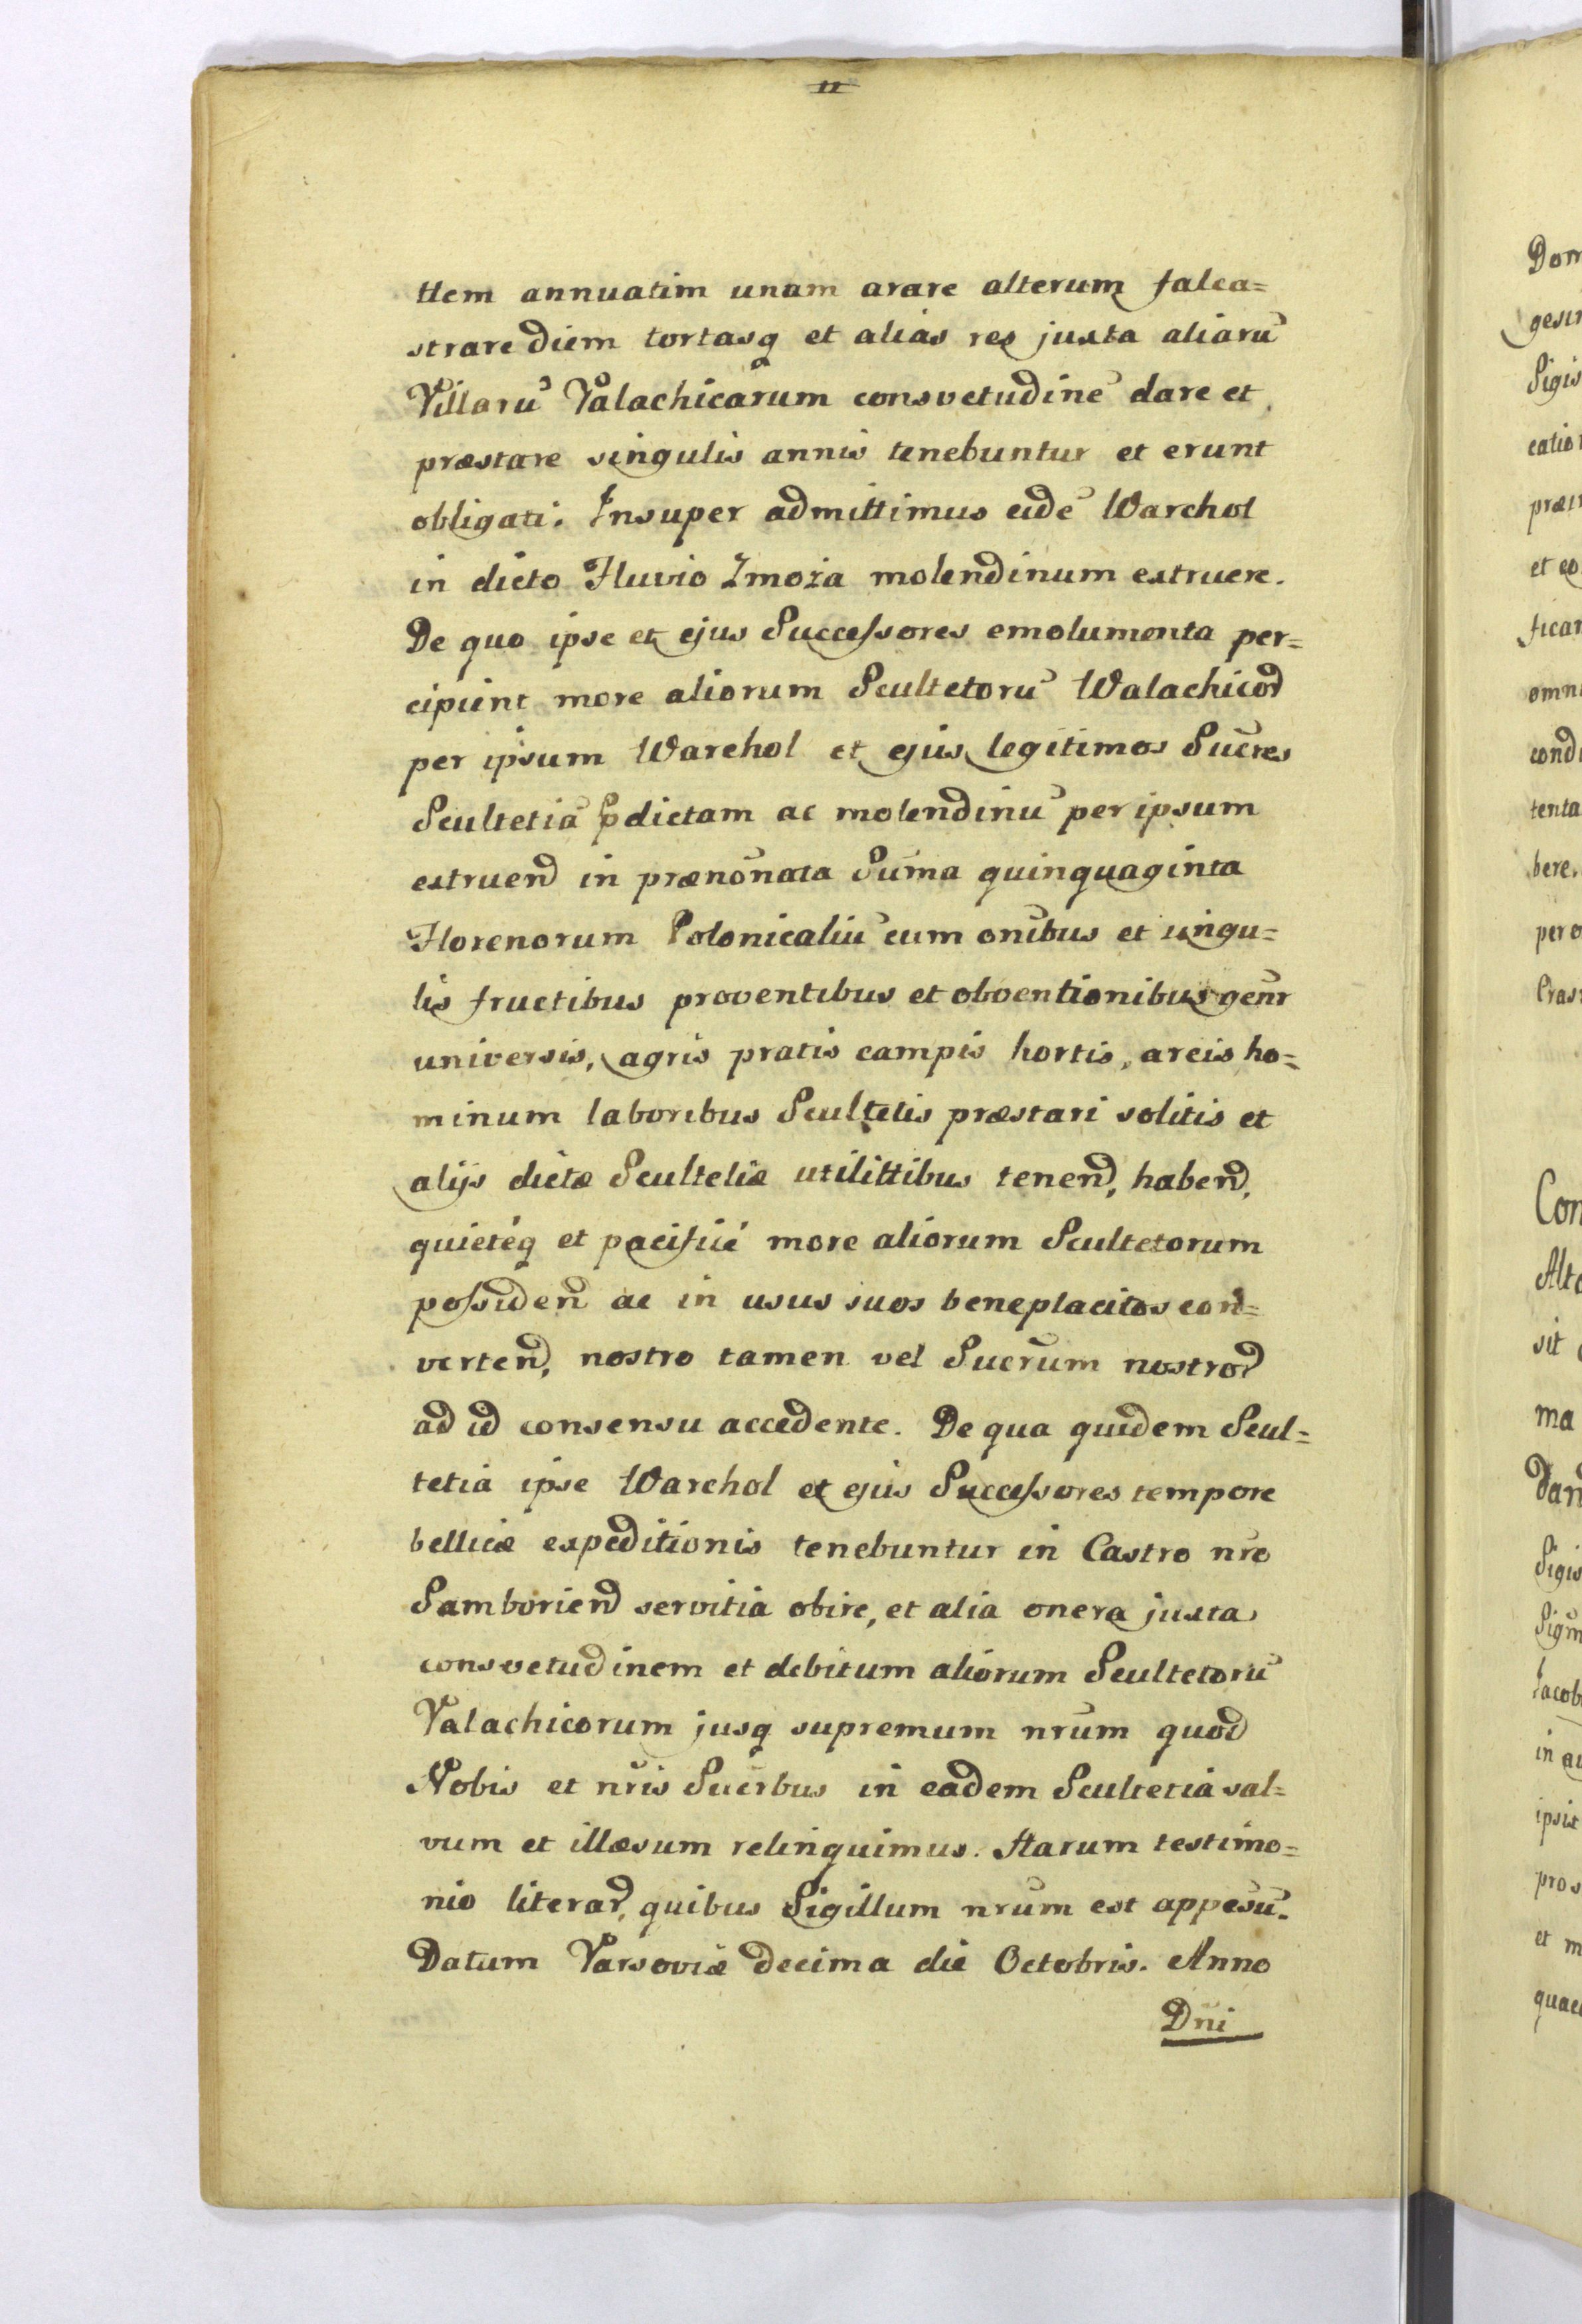 11
ttem annuatim unam arare alterum falca=
strare diem tortasq et alias res juxta aliarū
Villarū Valachicarum consvetudinē dare et
præstare singulis annis tenebuntur et erunt
obligati. Insuper admittimus eidē Warchol
in dicto Fluvio Zmoża molendinum extruere.
De quo ipse et ejus Successores emolumenta per=
cipiint more aliorum Scultetorū Walachicoꝝ
per ipsum Warchol et ejus legitimos Sucres
Scultetiā ꝑdictam ac molendinū per ipsum
extruend in prænōnata Sūma quinquaginta
Florenorum Polonicaliū cum onībus et singu=
lis fructibus proventibus et obventionibus genr
universis, agris pratis campis hortis, areis ho=
minum laboribus Scultetis præstari solitis et
alijs dictæ Scultetiæ utilittibus tenend, habend,
quietéq et pacificé more aliorum Scultetorum
possidend ac in usus suos beneplacitos con=
vertend, nostro tamen vel Sucrum nostroꝝ
ad id consensu accedente. De qua quidem Scul=
tetia ipse Warchol et ejus Successores tempore
bellicæ expeditionis tenebuntur in Castro nro
Samboriend servitia obire, et alia onera juxta
consvetudinem et debitum aliorum Scultetorū
Valachicorum jusq supremum nrum quod
Nobis et nris Sucrbus in eadem Scultetia sal=
vum et illæsum relinquimus. Harum testimo=
nio literaꝝ, quibus Sigillum nrum est appēsū.
Datum Varsoviæ decima die Octobris. Anno
Dni